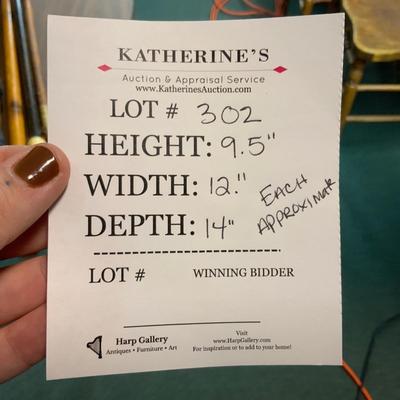 KATHERINE'S
Auction & Appraisal Service
www.KatherinesAuction.com
LOT # 302
HEIGHT: 9.5"
WIDTH: 12."
DEPTH: 14"
EACH
APPROXIMATE
LOT # WINNING BIDDER
Harp Gallery
Antiques • Furniture • Art
Visit
www.HarpGallery.com
For inspiration or to add to your home!